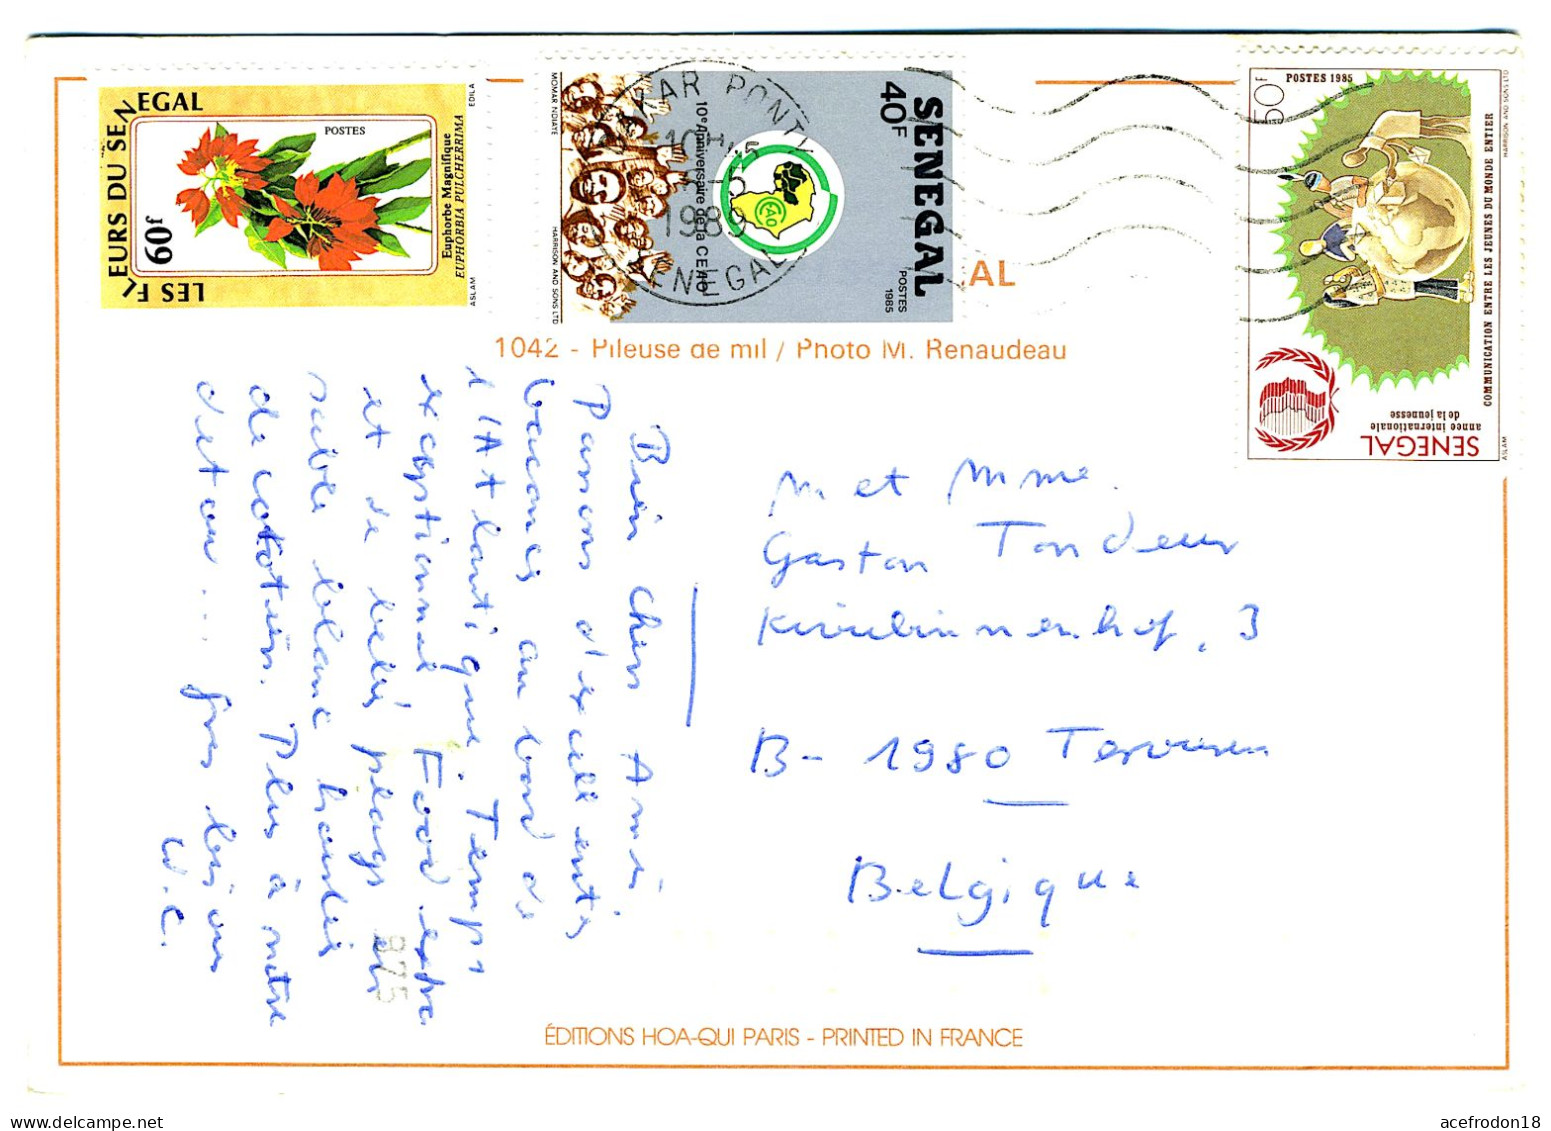 LES FLEURS DU SENEGAL
60f
POSTES
Euphorbe Magnifique
EUPHORBIA PULCHERRIMA
ASLAM
EDILA
MOMAR NDIAYE
HARRISON AND SONS LTD
10e Anniversaire de la CEAO
CEAO
40F
SENEGAL
POSTES
1985
DAKAR PONTY
1989
SENEGAL
50F
POSTES 1985
HARRISON AND SONS LTD
COMMUNICATION ENTRE LES JEUNES DU MONDE ENTIER
annee internationale
de la jeunesse
SENEGAL
ASLAM
AL
1042 - Pileuse de mil / Photo M. Renaudeau
Bien Chers Amis,
Passons d'excellentes
vacances au bord de
l'Atlantique. Temps
exceptionnel. Food
et de belles plages en
sable blanc bordées
de cocotiers. Plus à notre
retour... Gros bisous
W.C.
M et Mme.
Gaston Tondeur
3
B- 1980 Tervuren
Belgique
875
ÉDITIONS HOA-QUI PARIS - PRINTED IN FRANCE
acefrodon18